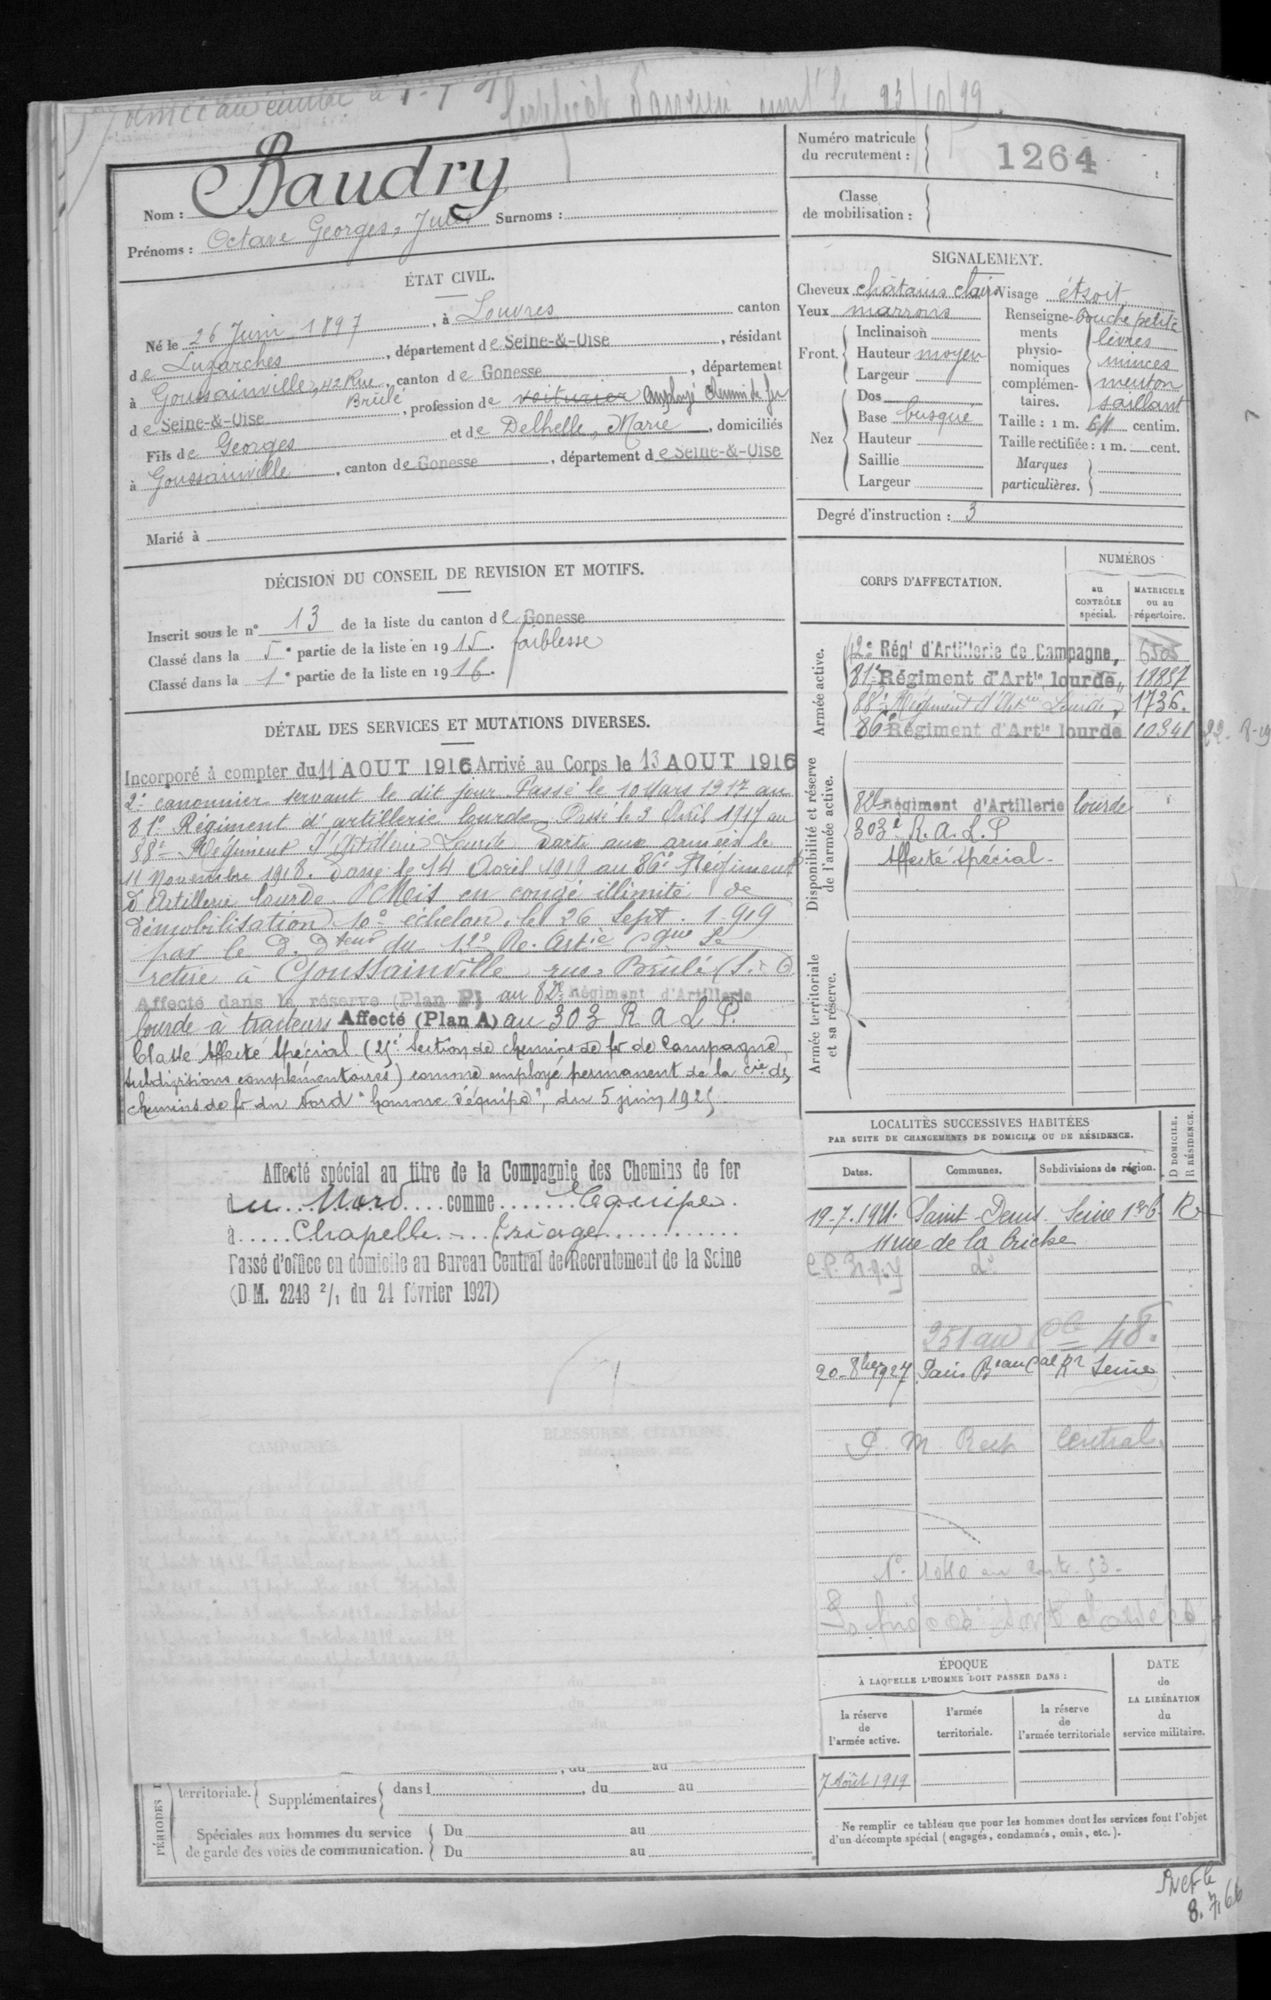 Numéro matricule
du recrutement :
1264
Classe
de mobilisation :
Nom : Baudry
Prénoms : Octave Georges, Jules Surnoms :
ÉTAT CIVIL.
Né le 26 Juin 1897, à Louvres canton
de Luzarches, département de Seine-&-Oise, résidant
à Goussainville, 42 Rue Brûlé, canton de Gonesse, département
de Seine-&-Oise, profession de voiturier employé chemin de fer
Fils de Georges et de Delhelle, Marie, domiciliés
à Goussainville, canton de Gonesse, département de Seine-&-Oise
Marié à
SIGNALEMENT.
Cheveux châtains clairs Visage étroit
Yeux marrons
Front. Inclinaison
Hauteur moyen
Largeur
Nez Dos
Base busqué
Hauteur
Saillie
Largeur
Renseignements physionomiques complémentaires. bouche petite
lèvres
minces
menton
saillant
Taille : 1 m. 64 centim.
Taille rectifiée : 1 m. cent.
Marques
particulières.
Degré d'instruction : 3
DÉCISION DU CONSEIL DE REVISION ET MOTIFS.
Inscrit sous le n° 13 de la liste du canton de Gonesse
Classé dans la 5e partie de la liste en 1915. faiblesse
Classé dans la 1e partie de la liste en 1916.
DÉTAIL DES SERVICES ET MUTATIONS DIVERSES.
Incorporé à compter du 11 AOUT 1916 Arrivé au Corps le 13 AOUT 1916
2e canonnier servant le dit jour Passé le 10 Mars 1917 au
81e Régiment d'artillerie lourde. Passé le 3 Avril 1917 au
88e Régiment d'Artillerie Lourde Parti aux armées le
11 Novembre 1918. Passé le 14 Avril 1919 au 86e Régiment
d'Artillerie lourde. Mis en congé illimité de
démobilisation 10e échelon, le 26 Sept. 1919
par le du 12e Se
retire à Goussainville rue Brûlé
Affecté dans la réserve (Plan P) au 82e Régiment d'Artillerie
lourde à tracteurs Affecté (Plan A) au 303 R A L P.
Classé Affecté Spécial (25e Section de chemins de fer de Campagne,
subdivisions complémentaires) comme employé permanent de la cie des
chemins de fer du Nord "homme d'équipe", du 5 juin 1925
Affecté spécial au titre de la Compagnie des Chemins de fer
du Nord comme Equipe
à Chapelle Triage
Passé d'office en domicile au Bureau Central de Recrutement de la Seine
(D.M. 2248 2/1 du 21 février 1927)
CAMPAGNES.
BLESSURES, CITATIONS,
DÉCORATIONS, ETC.
CORPS D'AFFECTATION.
NUMÉROS
au
CONTRÔLE
spécial.
MATRICULE
ou au
répertoire.
Armée active.
12e Régt d'Artillerie de Campagne, 6505
81e Régiment d'Artie lourde 18857
88e Régiment d'Artie Lourde, 1736.
86e Régiment d'Artie lourde 10341
Disponibilité et réserve
de l'armée active.
82e Régiment d'Artillerie lourde
303e R. A. L. P
Affecté spécial
Armée territoriale
et sa réserve.
LOCALITÉS SUCCESSIVES HABITÉES
PAR SUITE DE CHANGEMENTS DE DOMICILE OU DE RÉSIDENCE.
Dates.
Communes.
Subdivisions de région.
D DOMICILE.
R RÉSIDENCE.
19-7-1921. Saint-Denis Seine 1er B R
11 rue de la Briche
20-8bre 1927 Paris Beau Cal Rt Seine
P. M. Rect Central.
ÉPOQUE
À LAQUELLE L'HOMME DOIT PASSER DANS :
la réserve
de
l'armée active.
l'armée
territoriale.
la réserve
de
l'armée territoriale
DATE
de
LA LIBÉRATION
du
service militaire.
7 Août 1919
Ne remplir ce tableau que pour les hommes dont les services font l'objet
d'un décompte spécial (engagés, condamnés, omis, etc.).
PÉRIODES
territoriale. Supplémentaires dans l , du au
Spéciales aux hommes du service
de garde des voies de communication.
Du au
Du au